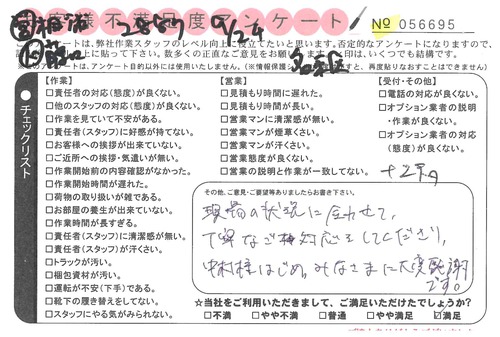 お客様不満度アンケート
№ 056695
9/24
アンケートは、弊社作業スタッフのレベル向上に役立てたいと思います。否定的なアンケートになりますので、
上に貼って下さい。数多くの正直なご意見をお願いします。
アンケート目的以外には使用いたしません。
チェックリスト
【作業】
□責任者の対応(態度)が良くない。
□他のスタッフの対応(態度)が良くない。
□作業を見ていて不安がある。
□責任者(スタッフ)に好感が持てない。
□お客様への挨拶が出来ていない。
□ご近所への挨拶・気遣いが無い。
□作業開始前の内容確認がなかった。
□作業開始時間が遅れた。
□荷物の取り扱いが雑である。
□お部屋の養生が出来ていない。
□作業時間が長すぎる。
□責任者(スタッフ)に清潔感が無い。
□責任者(スタッフ)が汗くさい。
□トラックが汚い。
□梱包資材が汚い。
□運転が不安(下手)である。
□靴下の履き替えをしてない。
□スタッフにやる気がみられない。
【営業】
□見積もり時間に遅れた。
□見積もり時間が長い。
□営業マンに清潔感が無い。
□営業マンが煙草くさい。
□営業マンが汗くさい。
□営業の態度が良くない。
□営業の説明と作業が一致してない。
【受付・その他】
□電話の対応が良くない。
□オプション業者の説明
・作業が良くない。
□オプション業者の対応
(態度)が良くない。
その他、ご意見・ご要望等ありましたらお書き下さい。
現場の状況に合わせて、
丁寧なご対応をしてくださり、
はじめ、みなさまに大変感謝
です。
☆当社をご利用いただきまして、ご満足いただけたでしょうか?
□不満 □やや不満 □普通 □やや満足 ☑満足